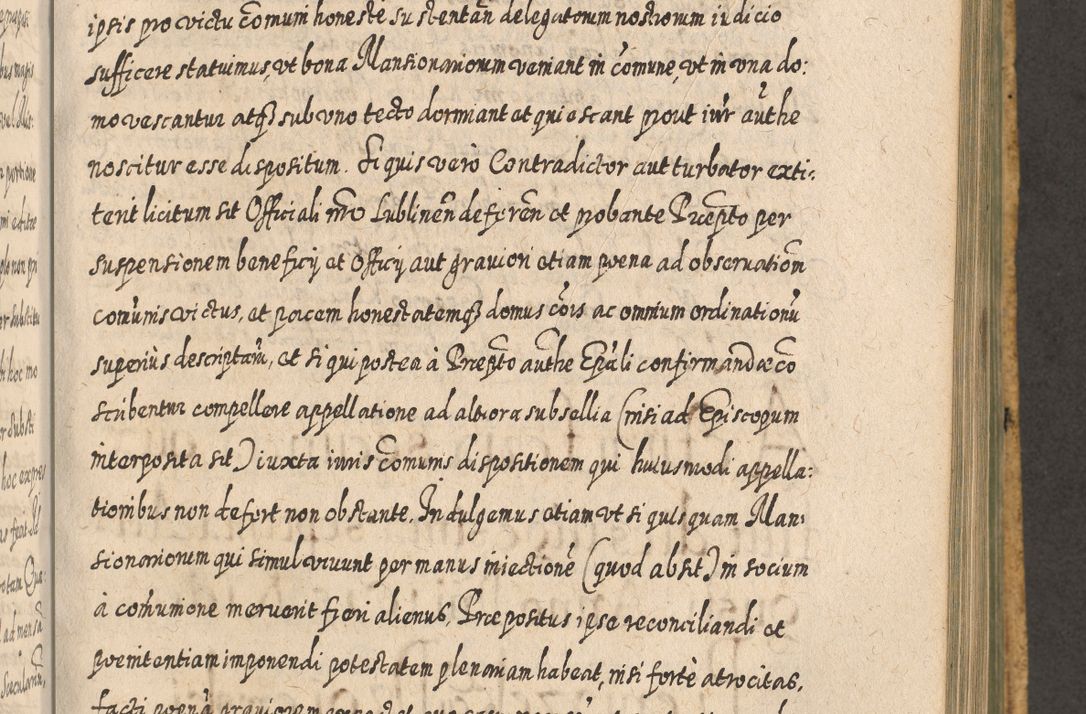 ipsis pro victu com̃uni honeste sustentan̄ delegatorum nostrorum iudicio
sufficere statuimus, vt bona Mansionariorum veniant in com̃une, vt in vna do:
mo vescantur atq́ sub vno tecto dormiant et quiescant prout iur̃ authe
noscitur esse dispositum. Si quis verò Contradictor aut turbator exti:
terit licitum sit Officiali nr̃o Lublinen̄ deferen̄ et probante Præp̃to per
suspensionem beneficij et Officij aut grauiori etiam pœna ad obseruation̄
com̃unis victus, et pacem honestatemq́ domus cõis ac omnium ordinationũ
superiùs descriptarũ, et si qui postea à Præp̃to authe Ep̃ali confirmandæ co
scribentur compellere appellatione ad altiora subsellia (nisi ad Episcopum
interposita sit) iuxta iuris com̃unis dispositionem qui huiusmodi appella:
tionibus non defert non obstante. Indulgemus etiam vt si quisquam Man:
sionariorum qui simul viuunt per manus iniectionẽ (quod absit) in socium
à com̃unione meruerit fieri alienus, Præpositus ipse reconciliandi et
pœnitentiam imponendi potestatem plenariam habeat, nisi fortè atrocitas,
facti pœnã grauiorem